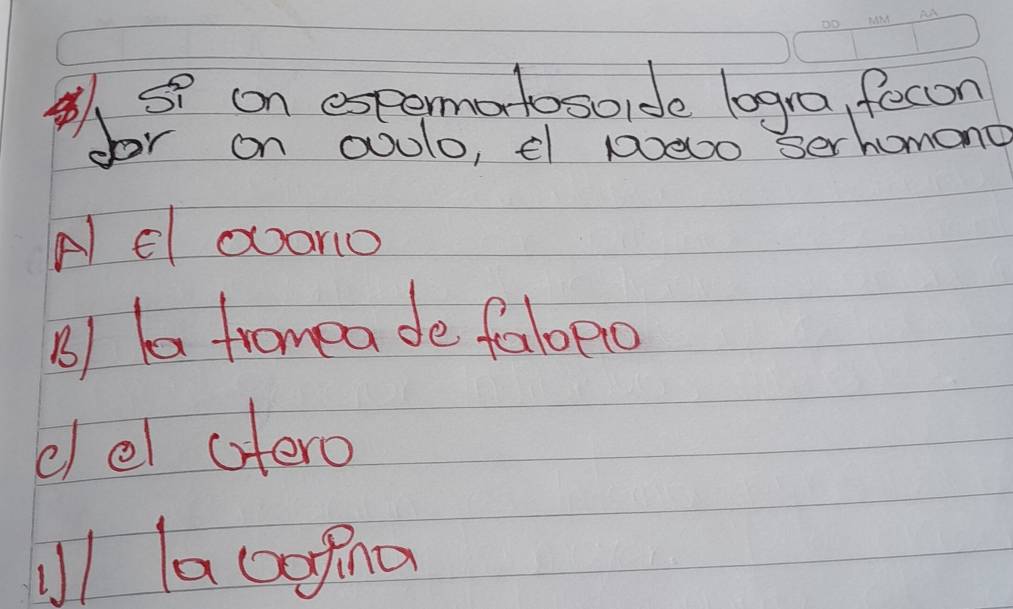 DD MM AA
8) Si on espermatosoide logra, fecon
dar on ovulo, el nuevo ser homano
A) El ovario
B) la trompa de falopio
c) el utero
D) la vagina